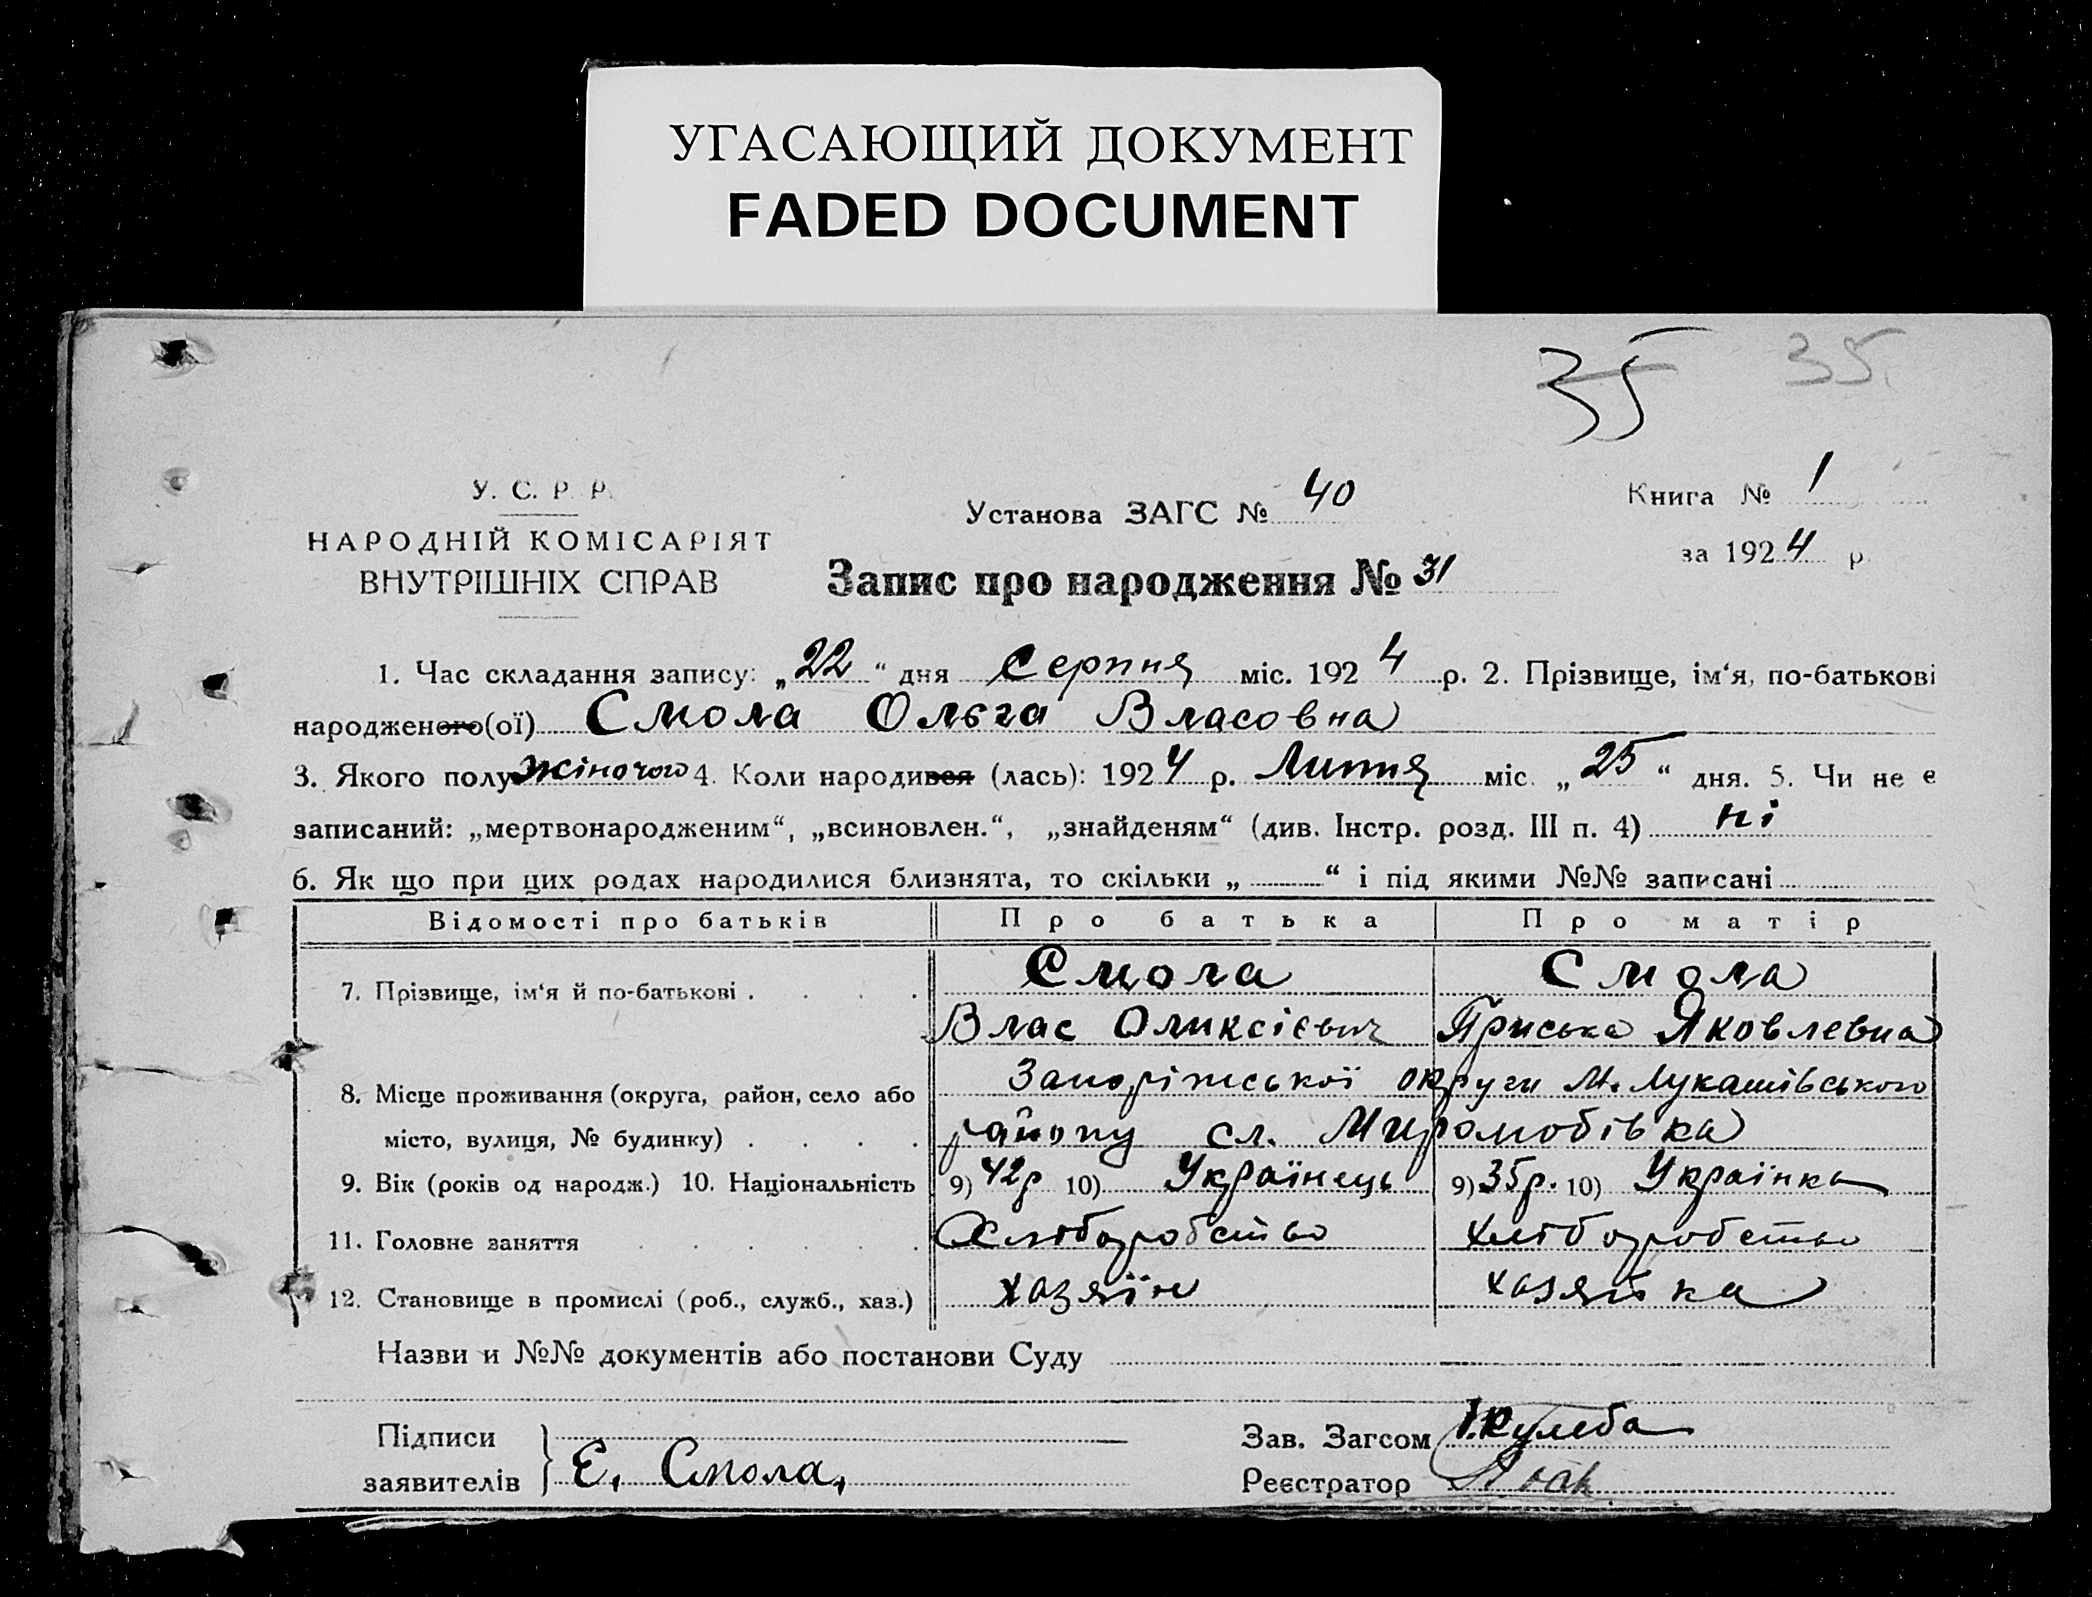 УГАСАЮЩИЙ ДОКУМЕНТ
FADED DOCUMENT
35 35.
У. С. Р. Р.
НАРОДНІЙ КОМІСАРІЯТ
ВНУТРІШНІХ СПРАВ
Установа ЗАГС № 40
Книга № 1
за 1924 р.
Запис про народження № 31
1. Час складання запису: „22“ дня Серпня міс. 1924 р. 2. Прізвище, ім‘я, по-батькові
народженого(ої) Смола Ольга Власовна
3. Якого полу жіночого 4. Коли народився (лась): 1924 р. Липня міс. „25“ дня. 5. Чи не є
записаний: „мертвонародженим“, „всиновлен.“, „знайденям“ (див. Інстр. розд. III п. 4) ні
6. Як що при цих родах народилися близнята, то скільки „ “ і під якими №№ записані
Відомості про батьків Про батька Про матір
7. Прізвище, ім‘я й по-батькові Смола Смола
Влас Оликсієвич Приська Яковлевна
8. Місце проживання (округа, район, село або Запоріжської округи М. Лукашівського
місто, вулиця, № будинку) району сл. Миролюбівка
9. Вік (років од народж.) 10. Національність 9) 42р 10) Українець 9) 35р. 10) Українка
11. Головне заняття Хліборобство хліборобство
12. Становище в промислі (роб., служб., хаз.) хазяїн хазяйка
Назви и №№ документів або постанови Суду
Підписи
заявителів Е. Смола,
Зав. Загсом І. Кулеба
Реєстратор